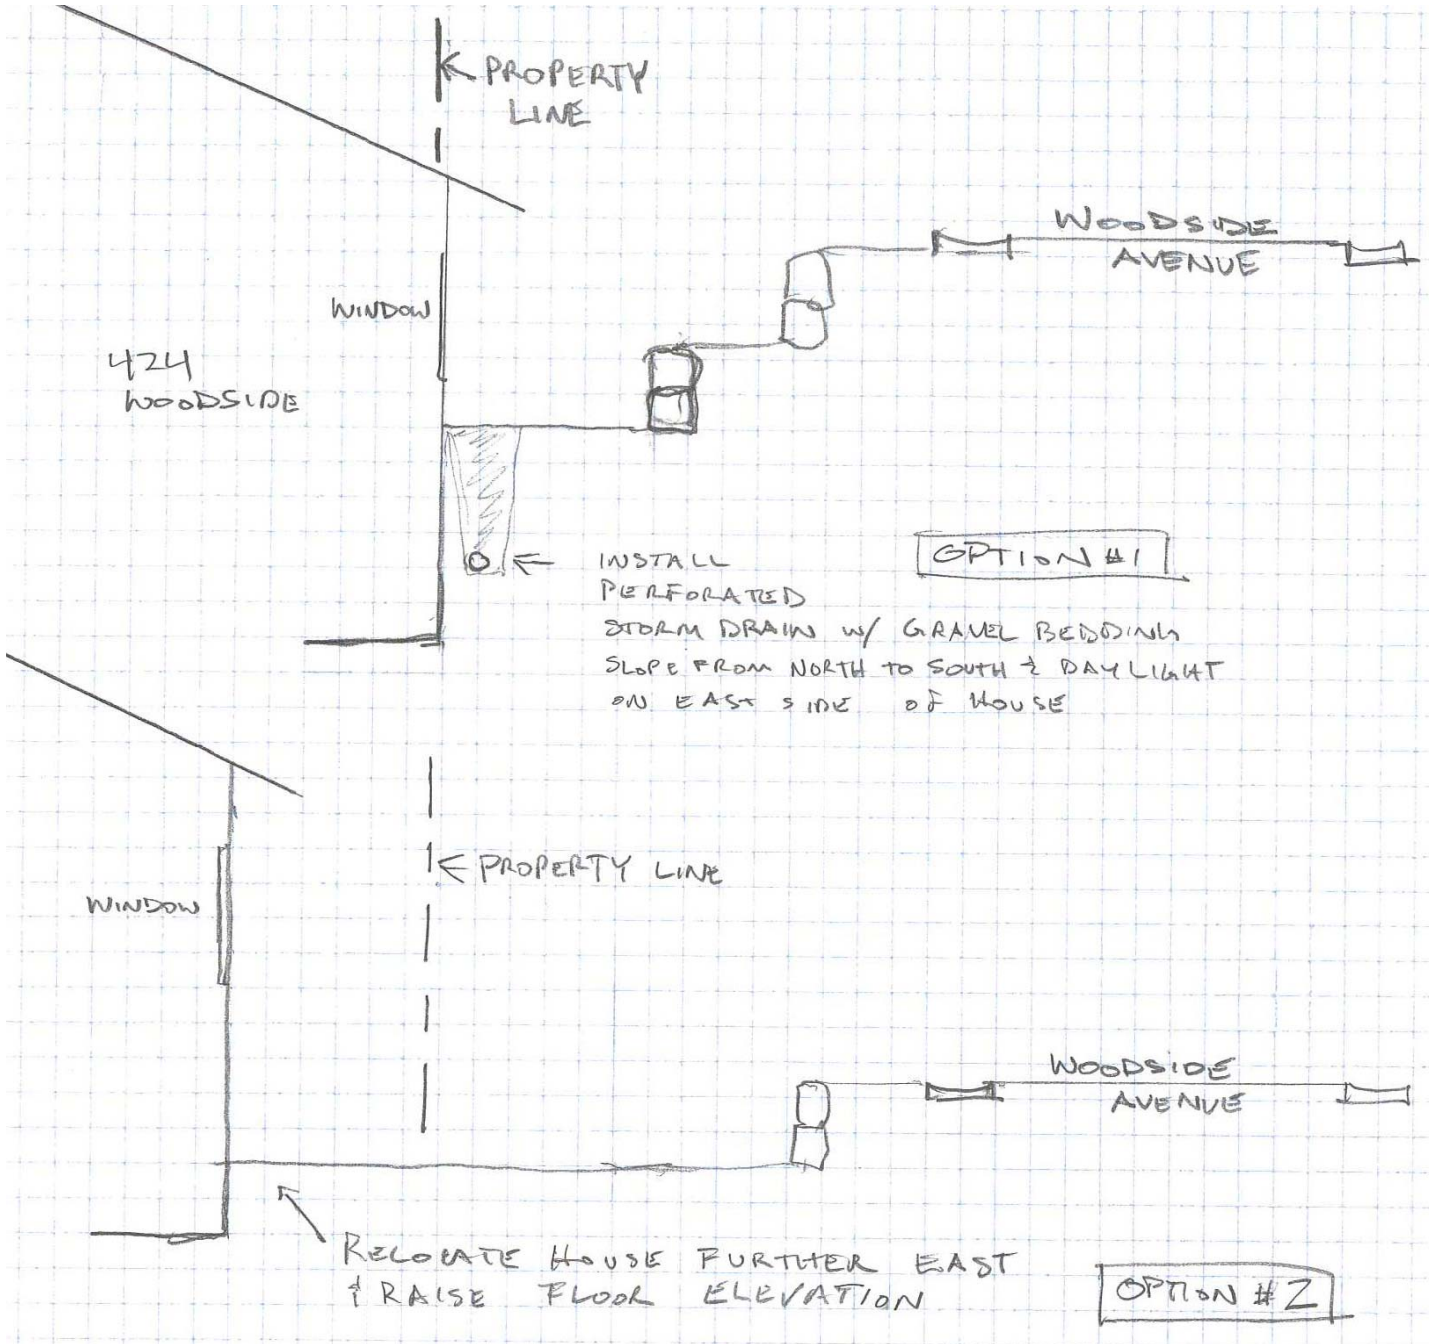 PROPERTY
LINE
WOODSIDE
AVENUE
WINDOW
424
WOODSIDE
OPTION #1
INSTALL
PERFORATED
STORM DRAIN W/ GRAVEL BEDDING
SLOPE FROM NORTH TO SOUTH & DAYLIGHT
ON EAST SIDE OF HOUSE
PROPERTY LINE
WINDOW
WOODSIDE
AVENUE
RELOCATE HOUSE FURTHER EAST
& RAISE FLOOR ELEVATION
OPTION #2